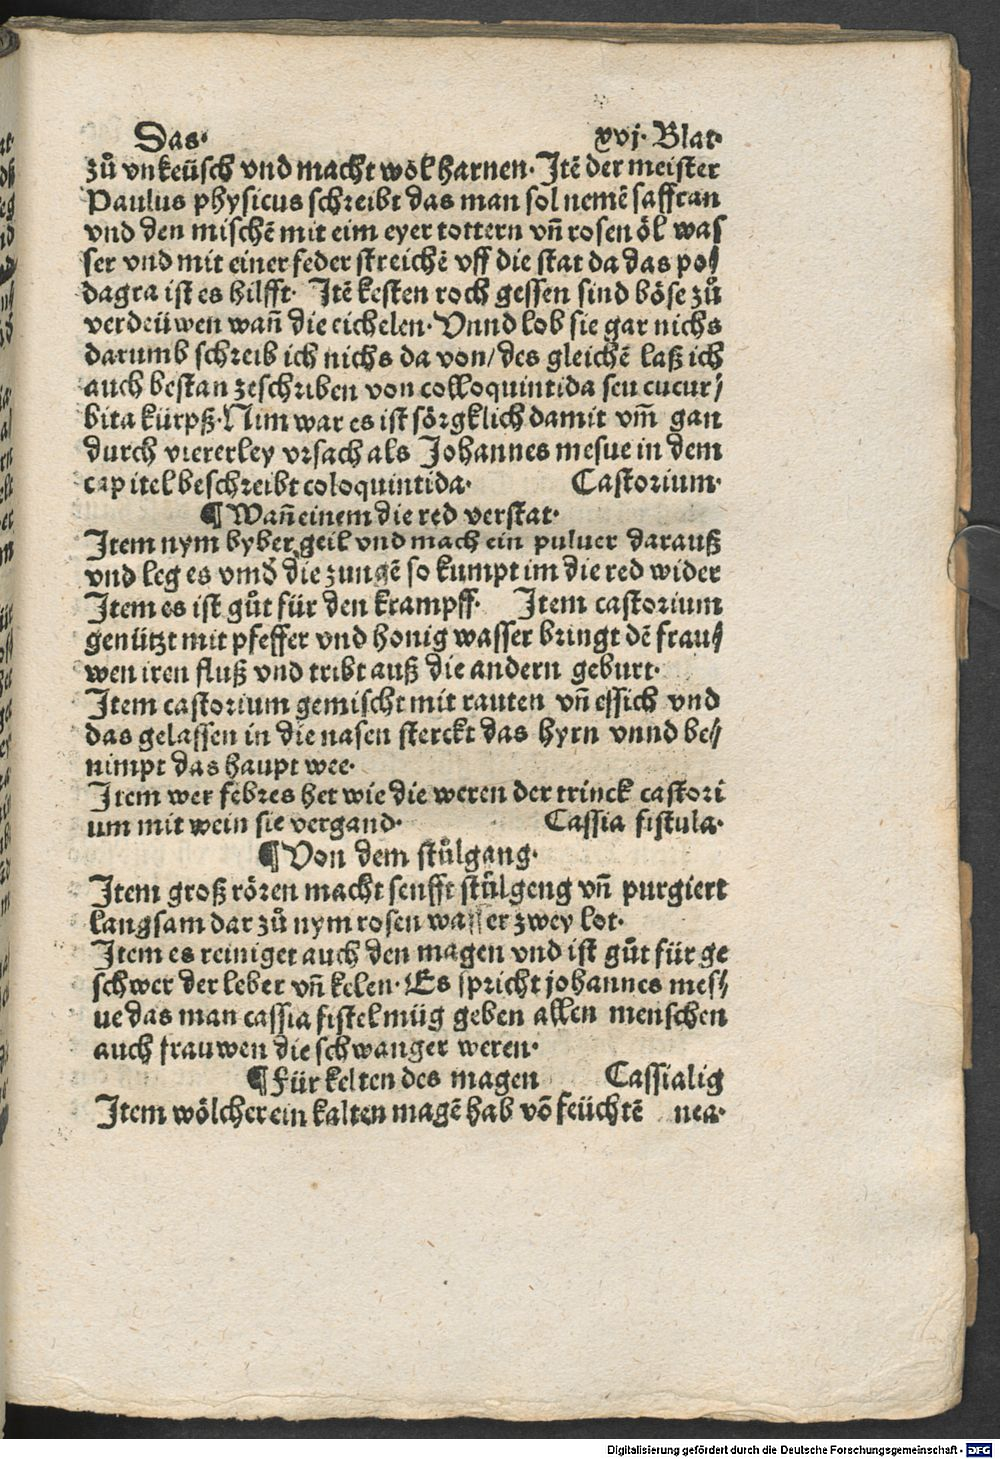 Das· xvj· Blat·
zů vnkeüsch vnd macht wol harnen· Itē der meister
Paulus physicus schreibt das man sol nemē saffran
vnd den mischē mit eim eyer tottern vñ rosen öl was
ser vnd mit einer feder streichē vff die stat da das po/
dagra ist es hilfft· Itē kesten roch gessen sind böse zů
verdeüwen wañ die eichelen· Vnnd lob sie gar nichs
darumb schreib ich nichs da von/ des gleichē laß ich
auch bestan zeschriben von colloquintida seu cucur/
bita kürpß· Nim war es ist sörgklich damit vm̄ gan
durch viererley vrsach als Johannes mesue in dem
capitel beschreibt coloquintida· Castorium·
¶ Wañ einem die red verstat·
Item nym byber geil vnd mach ein puluer darauß
vnd leg es vmd die zungē so kumpt im die red wider
Item es ist gůt für den krampff· Item castorium
genützt mit pfeffer vnd honig wasser bringt dē frau/
wen iren fluß vnd tribt auß die andern geburt·
Item castorium gemischt mit rauten vñ essich vnd
das gelassen in die nasen sterckt das hyrn vnnd be/
nimpt das haupt wee·
Item wer febres het wie die weren der trinck castori
um mit wein sie vergand· Cassia fistula·
¶ Von dem stůlgang·
Item groß rören macht senfft stůlgeng vñ purgiert
langsam dar zů nym rosen wasser zwey lot·
Item es reiniget auch den magen vnd ist gůt für ge
schwer der leber vñ kelen· Es spricht johannes mes/
ue das man cassia fistel müg geben allen menschen
auch frauwen die schwanger weren·
¶ Für kelten des magen Cassialig
Item wölcher ein kalten magē hab vō feüchtē nea·
Digitalisierung gefördert durch die Deutsche Forschungsgemeinschaft - DFG